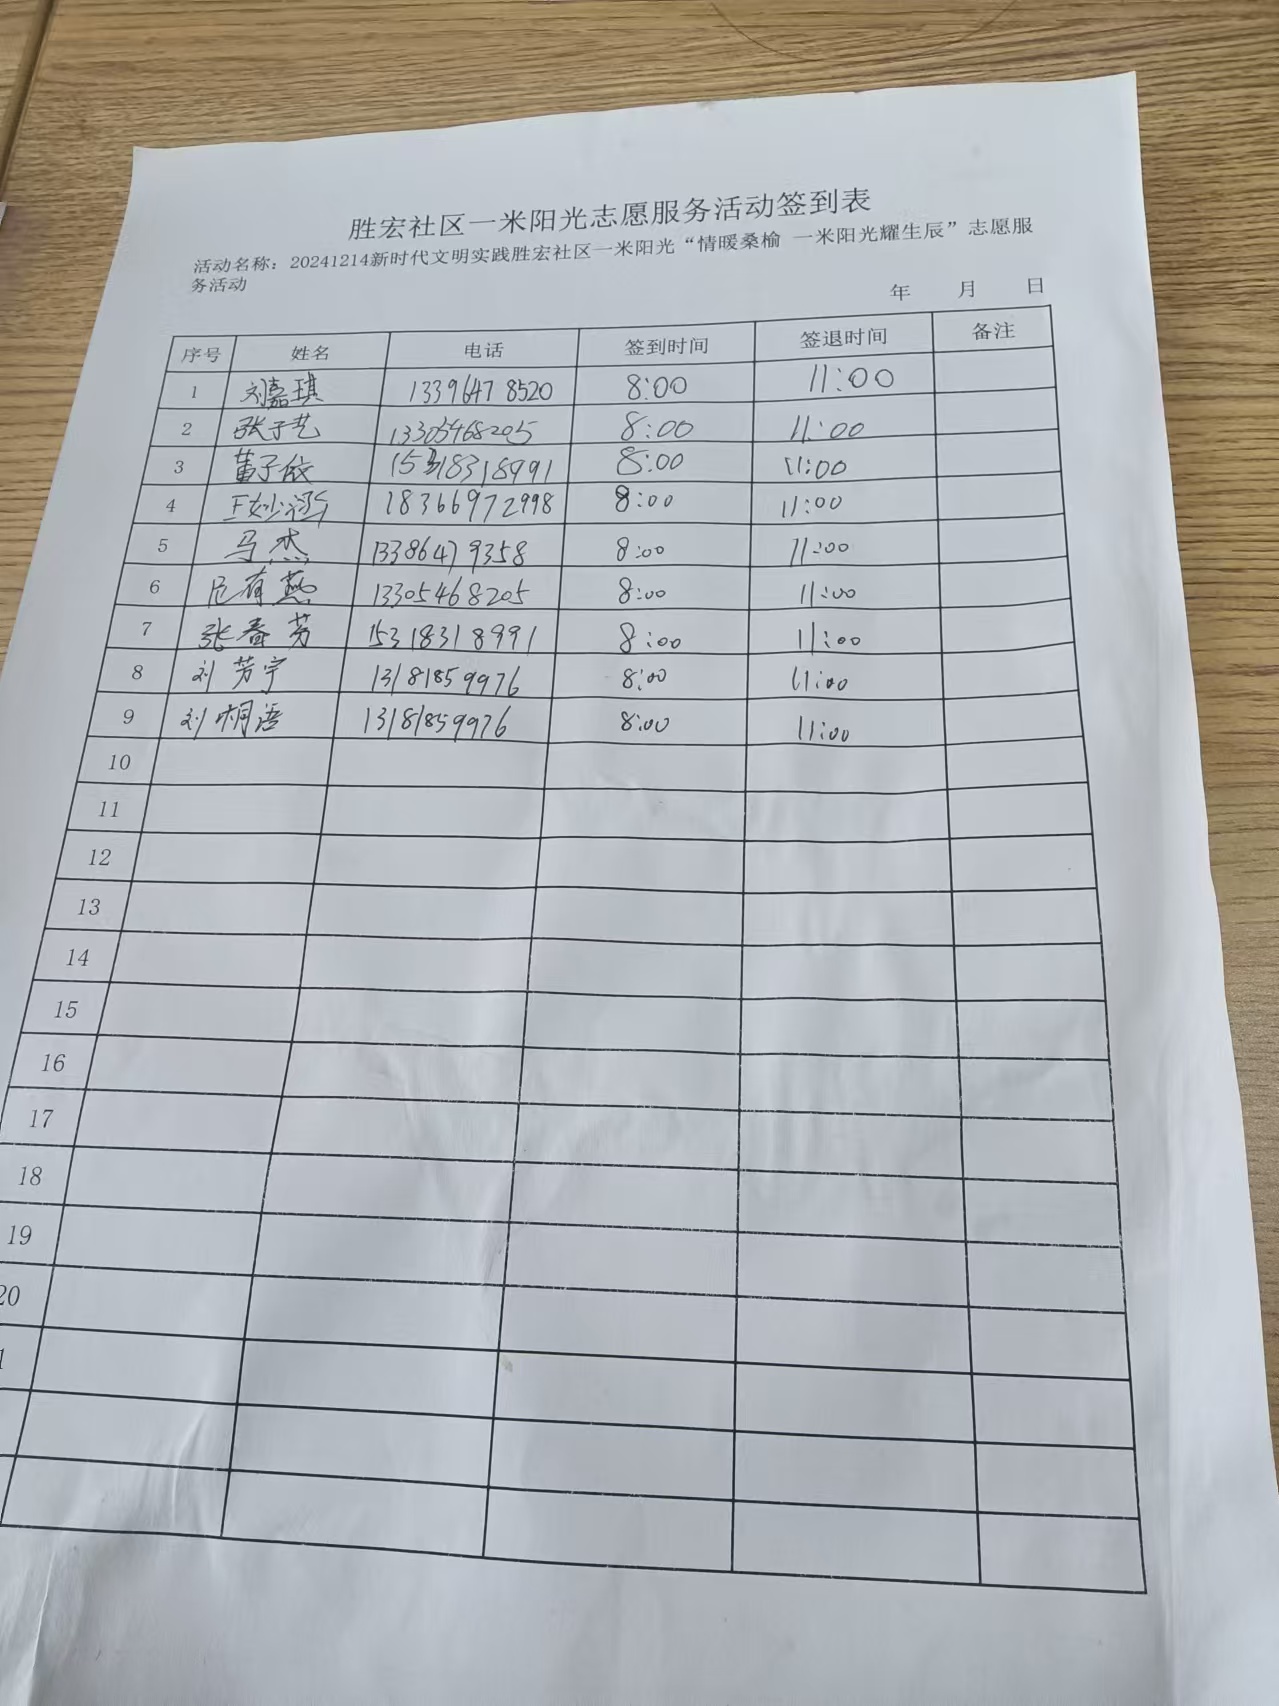 胜宏社区一米阳光志愿服务活动签到表
活动名称：20241214新时代文明实践胜宏社区一米阳光“情暖桑榆 一米阳光耀生辰”志愿服
务活动
年 月 日
序号 姓名 电话 签到时间 签退时间 备注
1 刘嘉琪 13396478520 8:00 11:00
2 张子艺 13305468205 8:00 11:00
3 董子依 15318318991 8:00 11:00
4 王妙涵 18366972998 8:00 11:00
5 马杰 13386479358 8:00 11:00
6 有燕 13305468205 8:00 11:00
7 张春芳 15318318991 8:00 11:00
8 刘芳宇 13181859976 8:00 11:00
9 刘桐语 13181859976 8:00 11:00
10
11
12
13
14
15
16
17
18
19
20
1